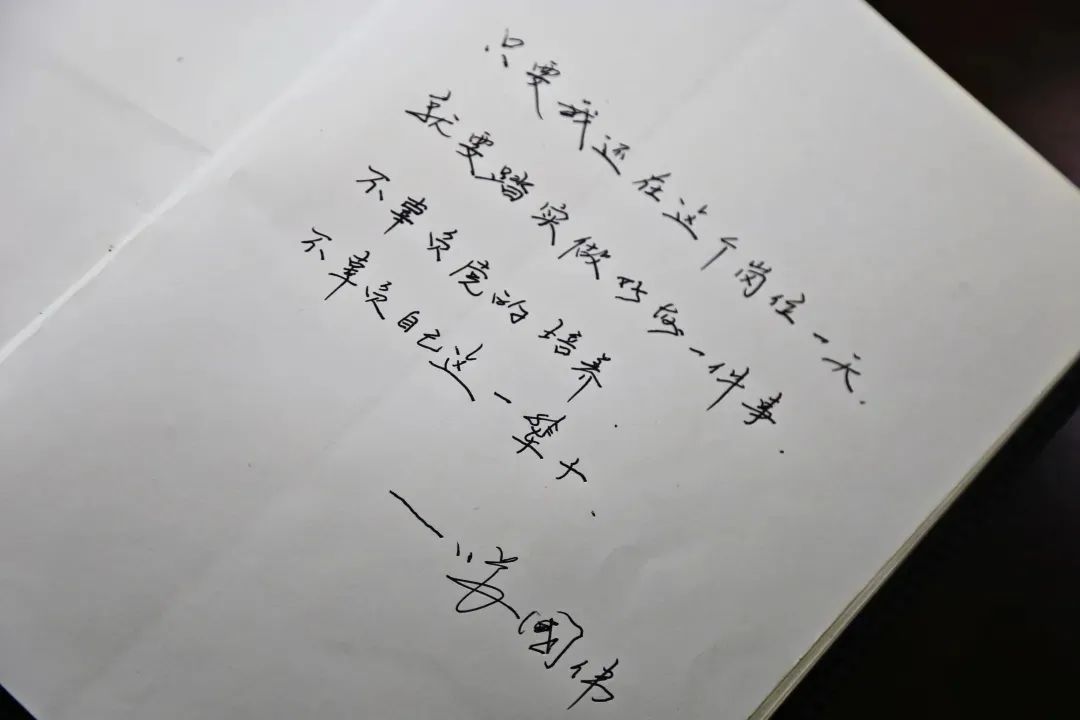 只要我还在这个岗位一天.
就要踏实做好每一件事.
不辜负党的培养.
不辜负自己这一辈子.
——国伟